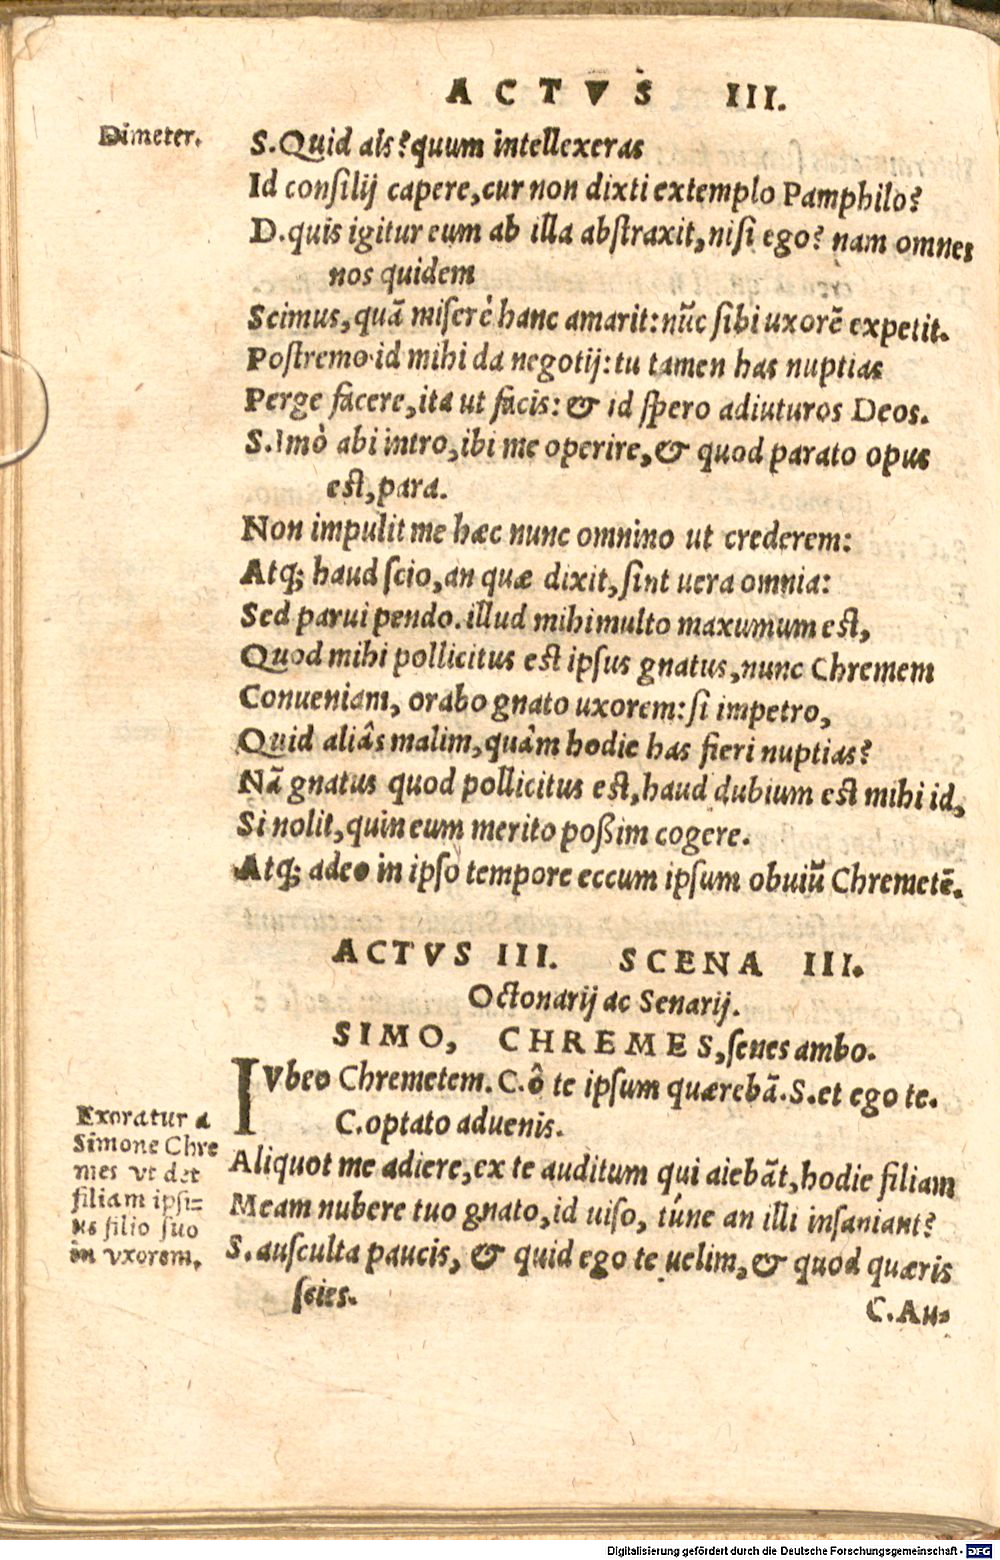 ACTVS III.
Dimeter.
S. Quid ais? quum intellexeras
Id consilij capere, cur non dixti extemplo Pamphilo?
D. quis igitur eum ab illa abstraxit, nisi ego? nam omnes
nos quidem
Scimus, quã miserè hanc amarit: nũc sibi uxorẽ expetit.
Postremo id mihi da negotij: tu tamen has nuptias
Perge facere, ita ut facis: & id spero adiuturos Deos.
S. Imò abi intro, ibi me operire, & quod parato opus
est, para.
Non impulit me hæc nunc omnino ut crederem:
Atq; haud scio, an quæ dixit, sint uera omnia:
Sed parui pendo. illud mihi multo maxumum est,
Quod mihi pollicitus est ipsus gnatus, nunc Chremem
Conueniam, orabo gnato uxorem: si impetro,
Quid aliâs malim, quàm hodie has fieri nuptias?
Nã gnatus quod pollicitus est, haud dubium est mihi id,
Si nolit, quin eum merito poßim cogere.
Atq; adeo in ipso tempore eccum ipsum obuiũ Chremetẽ.
ACTVS III. SCENA III.
Octonarij ac Senarij.
SIMO, CHREMES, senes ambo.
IVbeo Chremetem. C. ô te ipsum quærebã. S. et ego te.
C. optato aduenis.
Exoratur a
Simone Chre
mes vt det
filiam ipsi-
us filio suo
in vxorem.
Aliquot me adiere, ex te auditum qui aiebãt, hodie filiam
Meam nubere tuo gnato, id uiso, túne an illi insaniant?
S. ausculta paucis, & quid ego te uelim, & quod quæris
scies.
C. Au-
Digitalisierung gefördert durch die Deutsche Forschungsgemeinschaft - DFG